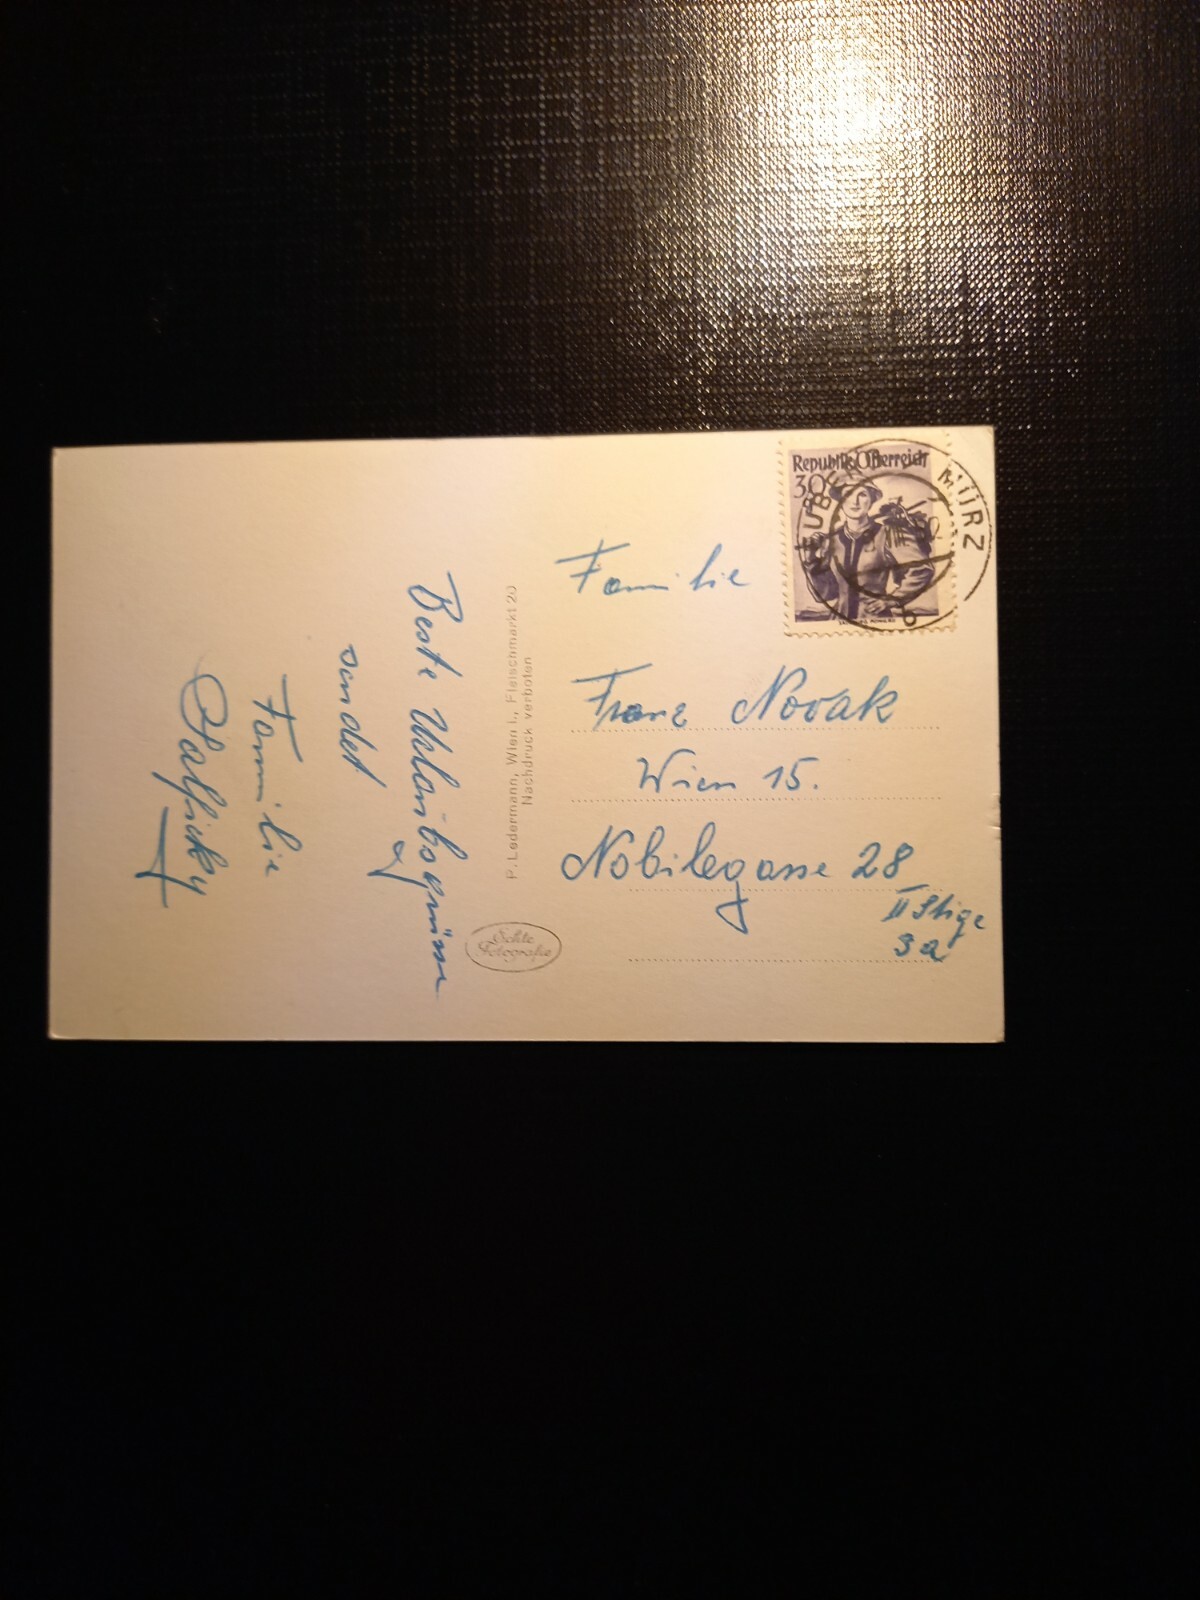 Beste Urlaubsgrüsse
sendet
Familie
P. Ledermann, Wien I., Fleischmarkt 20
Nachdruck verboten
Echte
Fotografie
Republik Österreich
30
NEUBERG MÜRZ
b
Familie
Franz Novak
Wien 15.
Nobilegasse 28
II Stige
3a